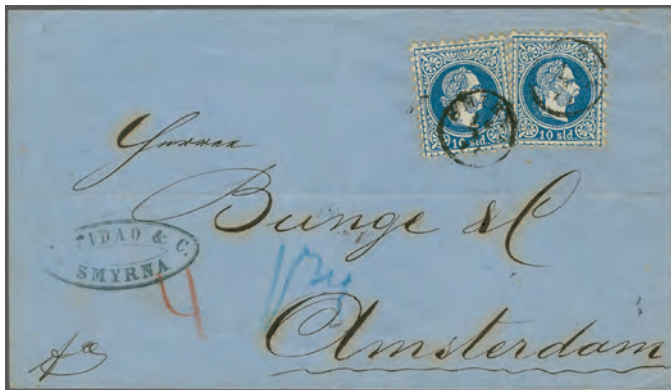 10 sld. 10 sld.
Herren
Bunge & C
IDAO & C.
SMYRNA
4
Amsterdam